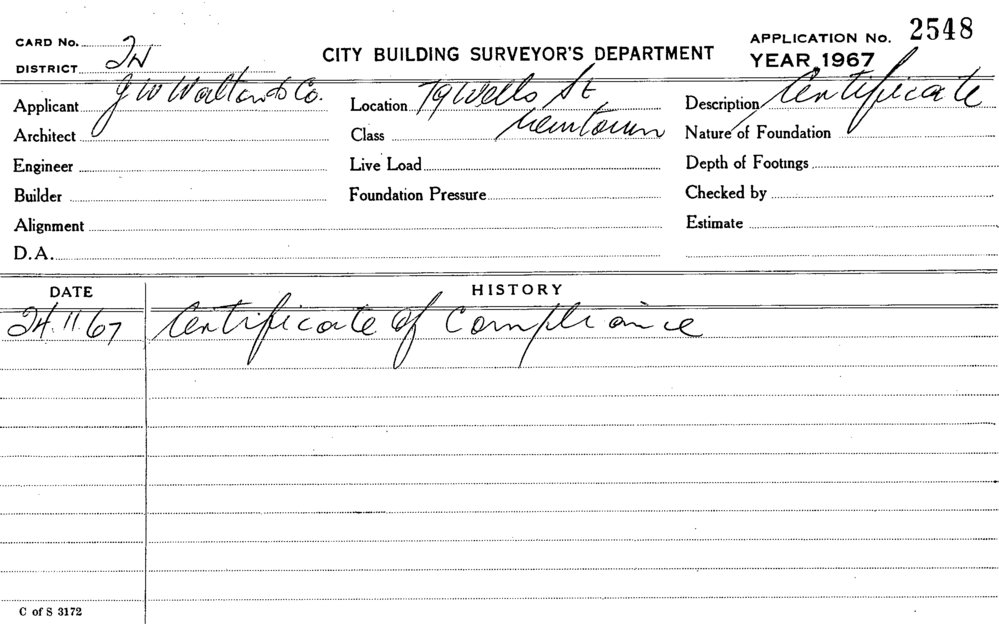 CARD No. 2W
CITY BUILDING SURVEYOR'S DEPARTMENT
APPLICATION No. 2548
DISTRICT
YEAR 1967
Applicant J W Walton & Co.
Location 79 Wells St
Description Certificate
Architect
Class Newtown
Nature of Foundation
Engineer
Live Load
Depth of Footings
Builder
Foundation Pressure
Checked by
Alignment
Estimate
D.A.
DATE
HISTORY
24.11.67 Certificate of Compliance
C of S 3172